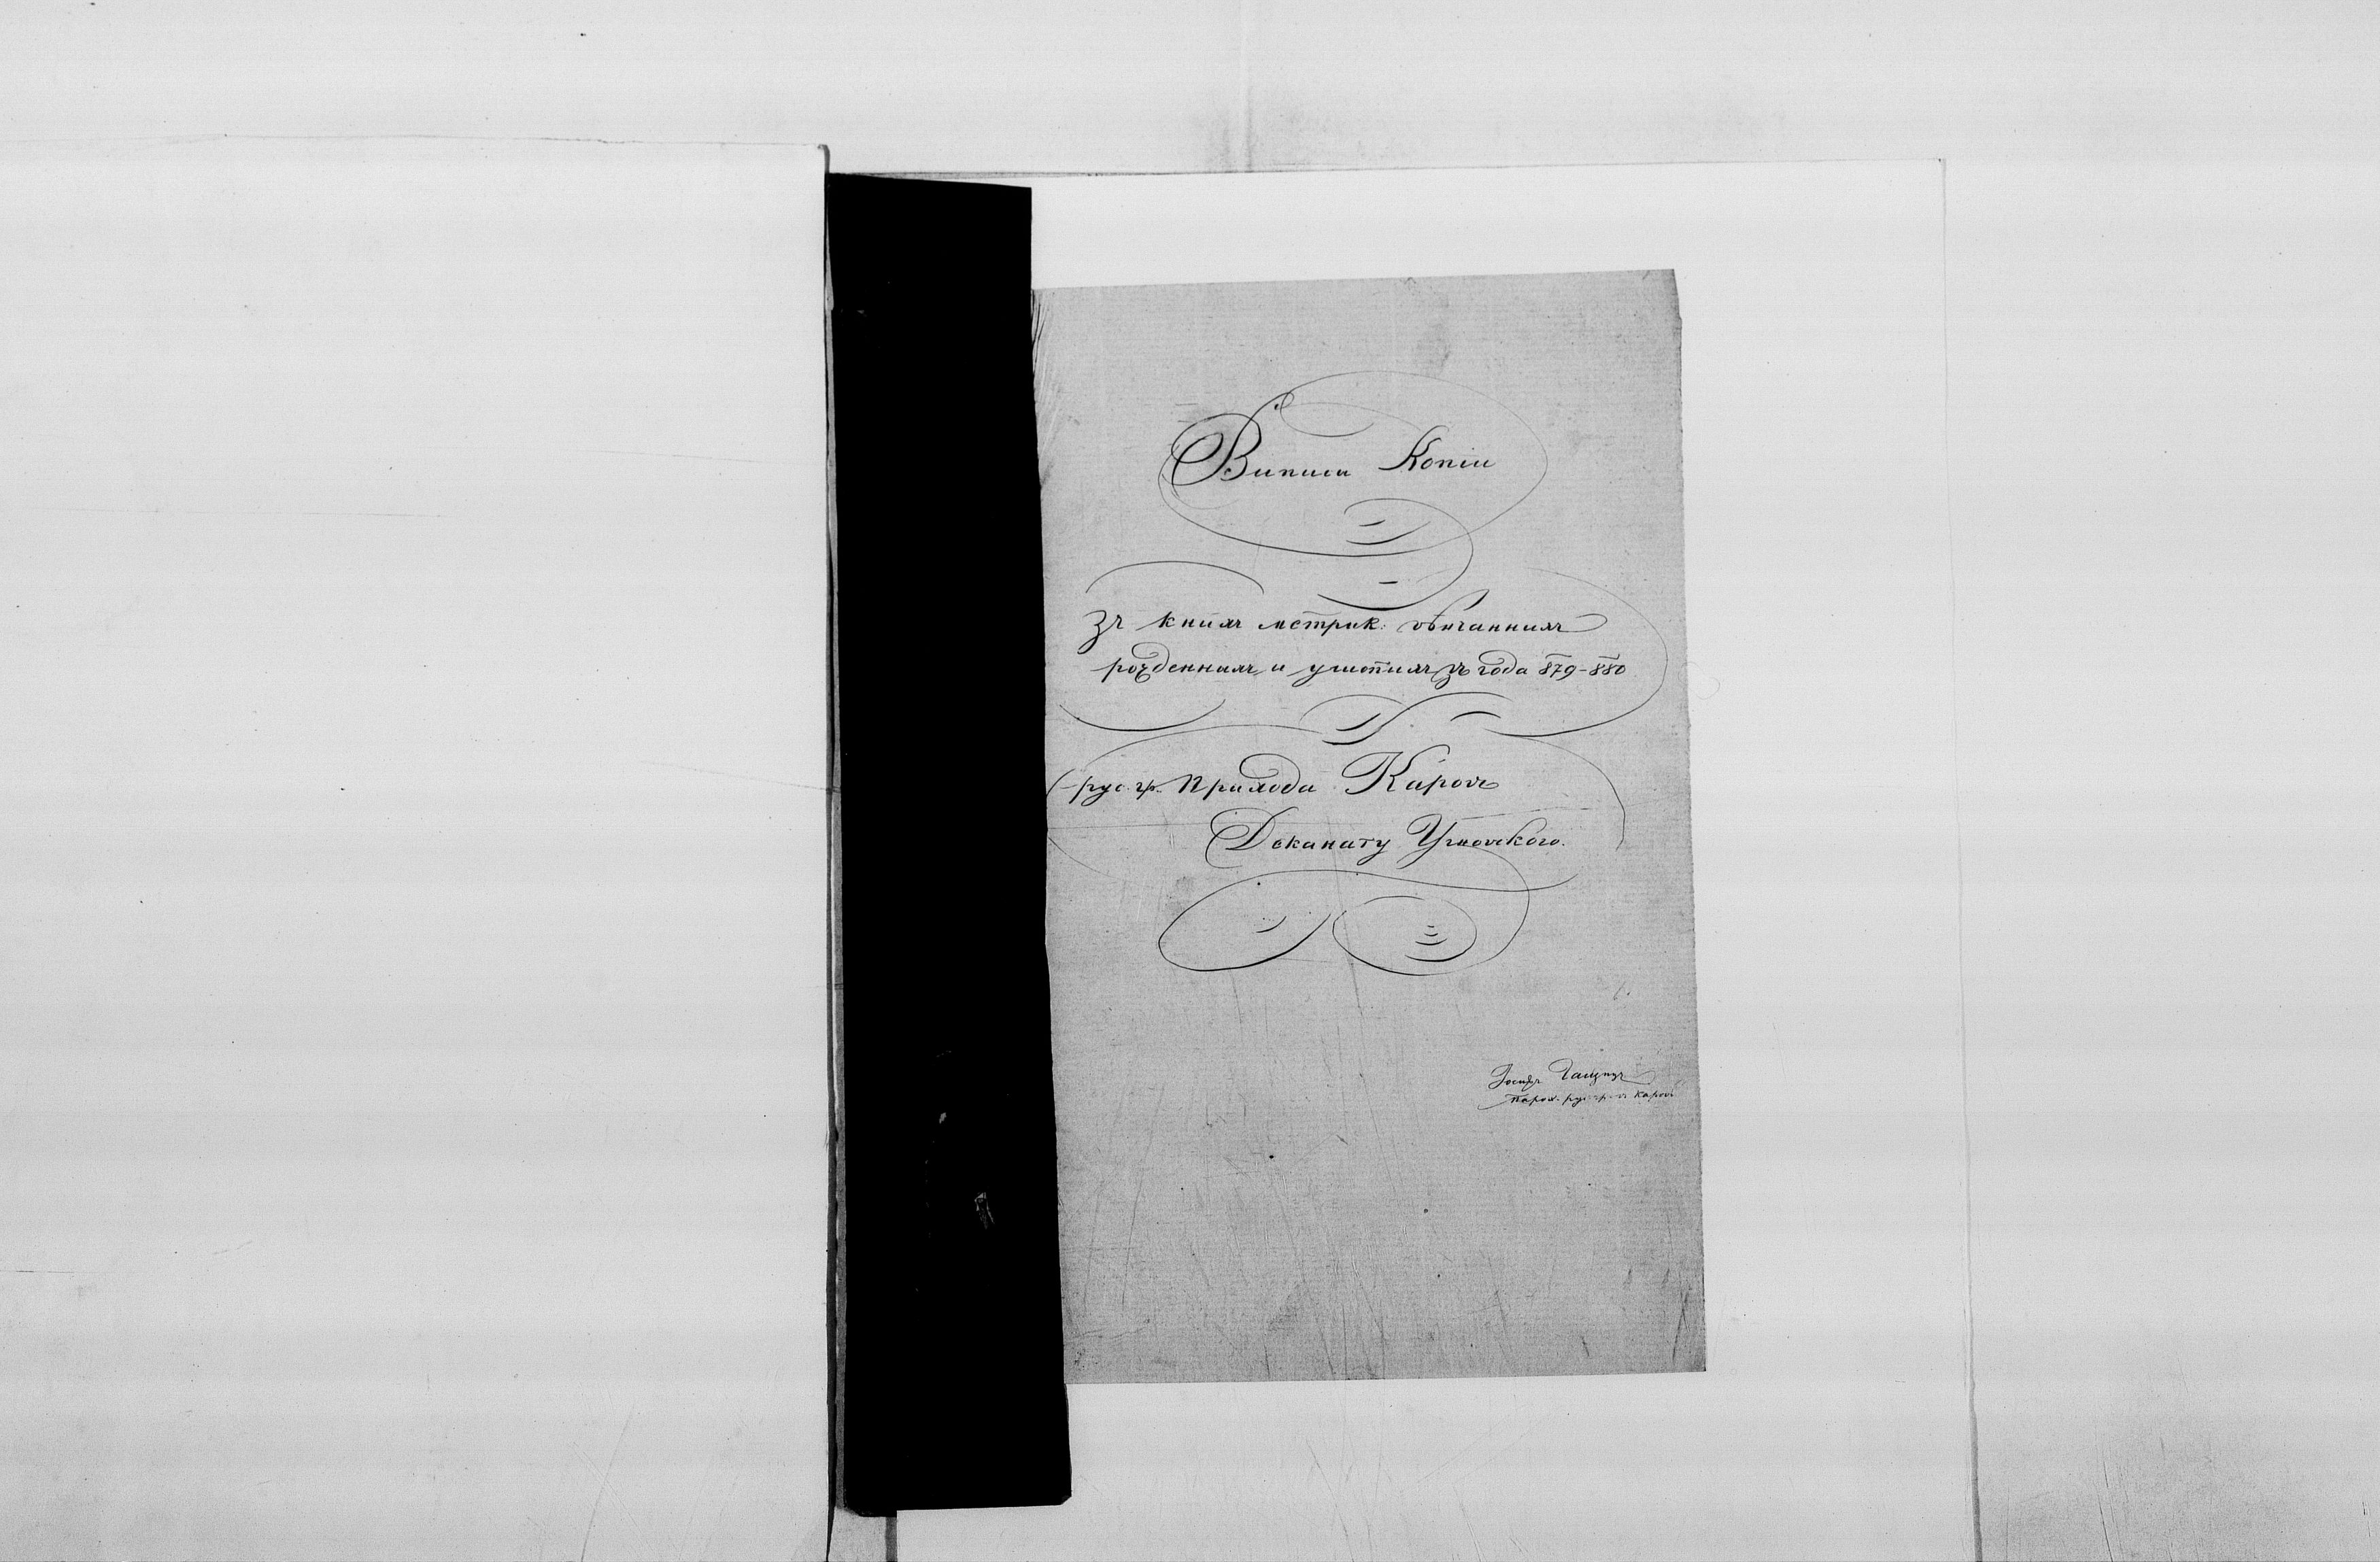 Виписи Копіи
зъ книгъ метрик: вѣнчанныхъ
рожденныхъ и умершихъ зъ года 879-880
рус. гр. Прихода Каровъ
Деканату Угновского.
Іосифъ
парох. рус. гр. въ Каровѣ